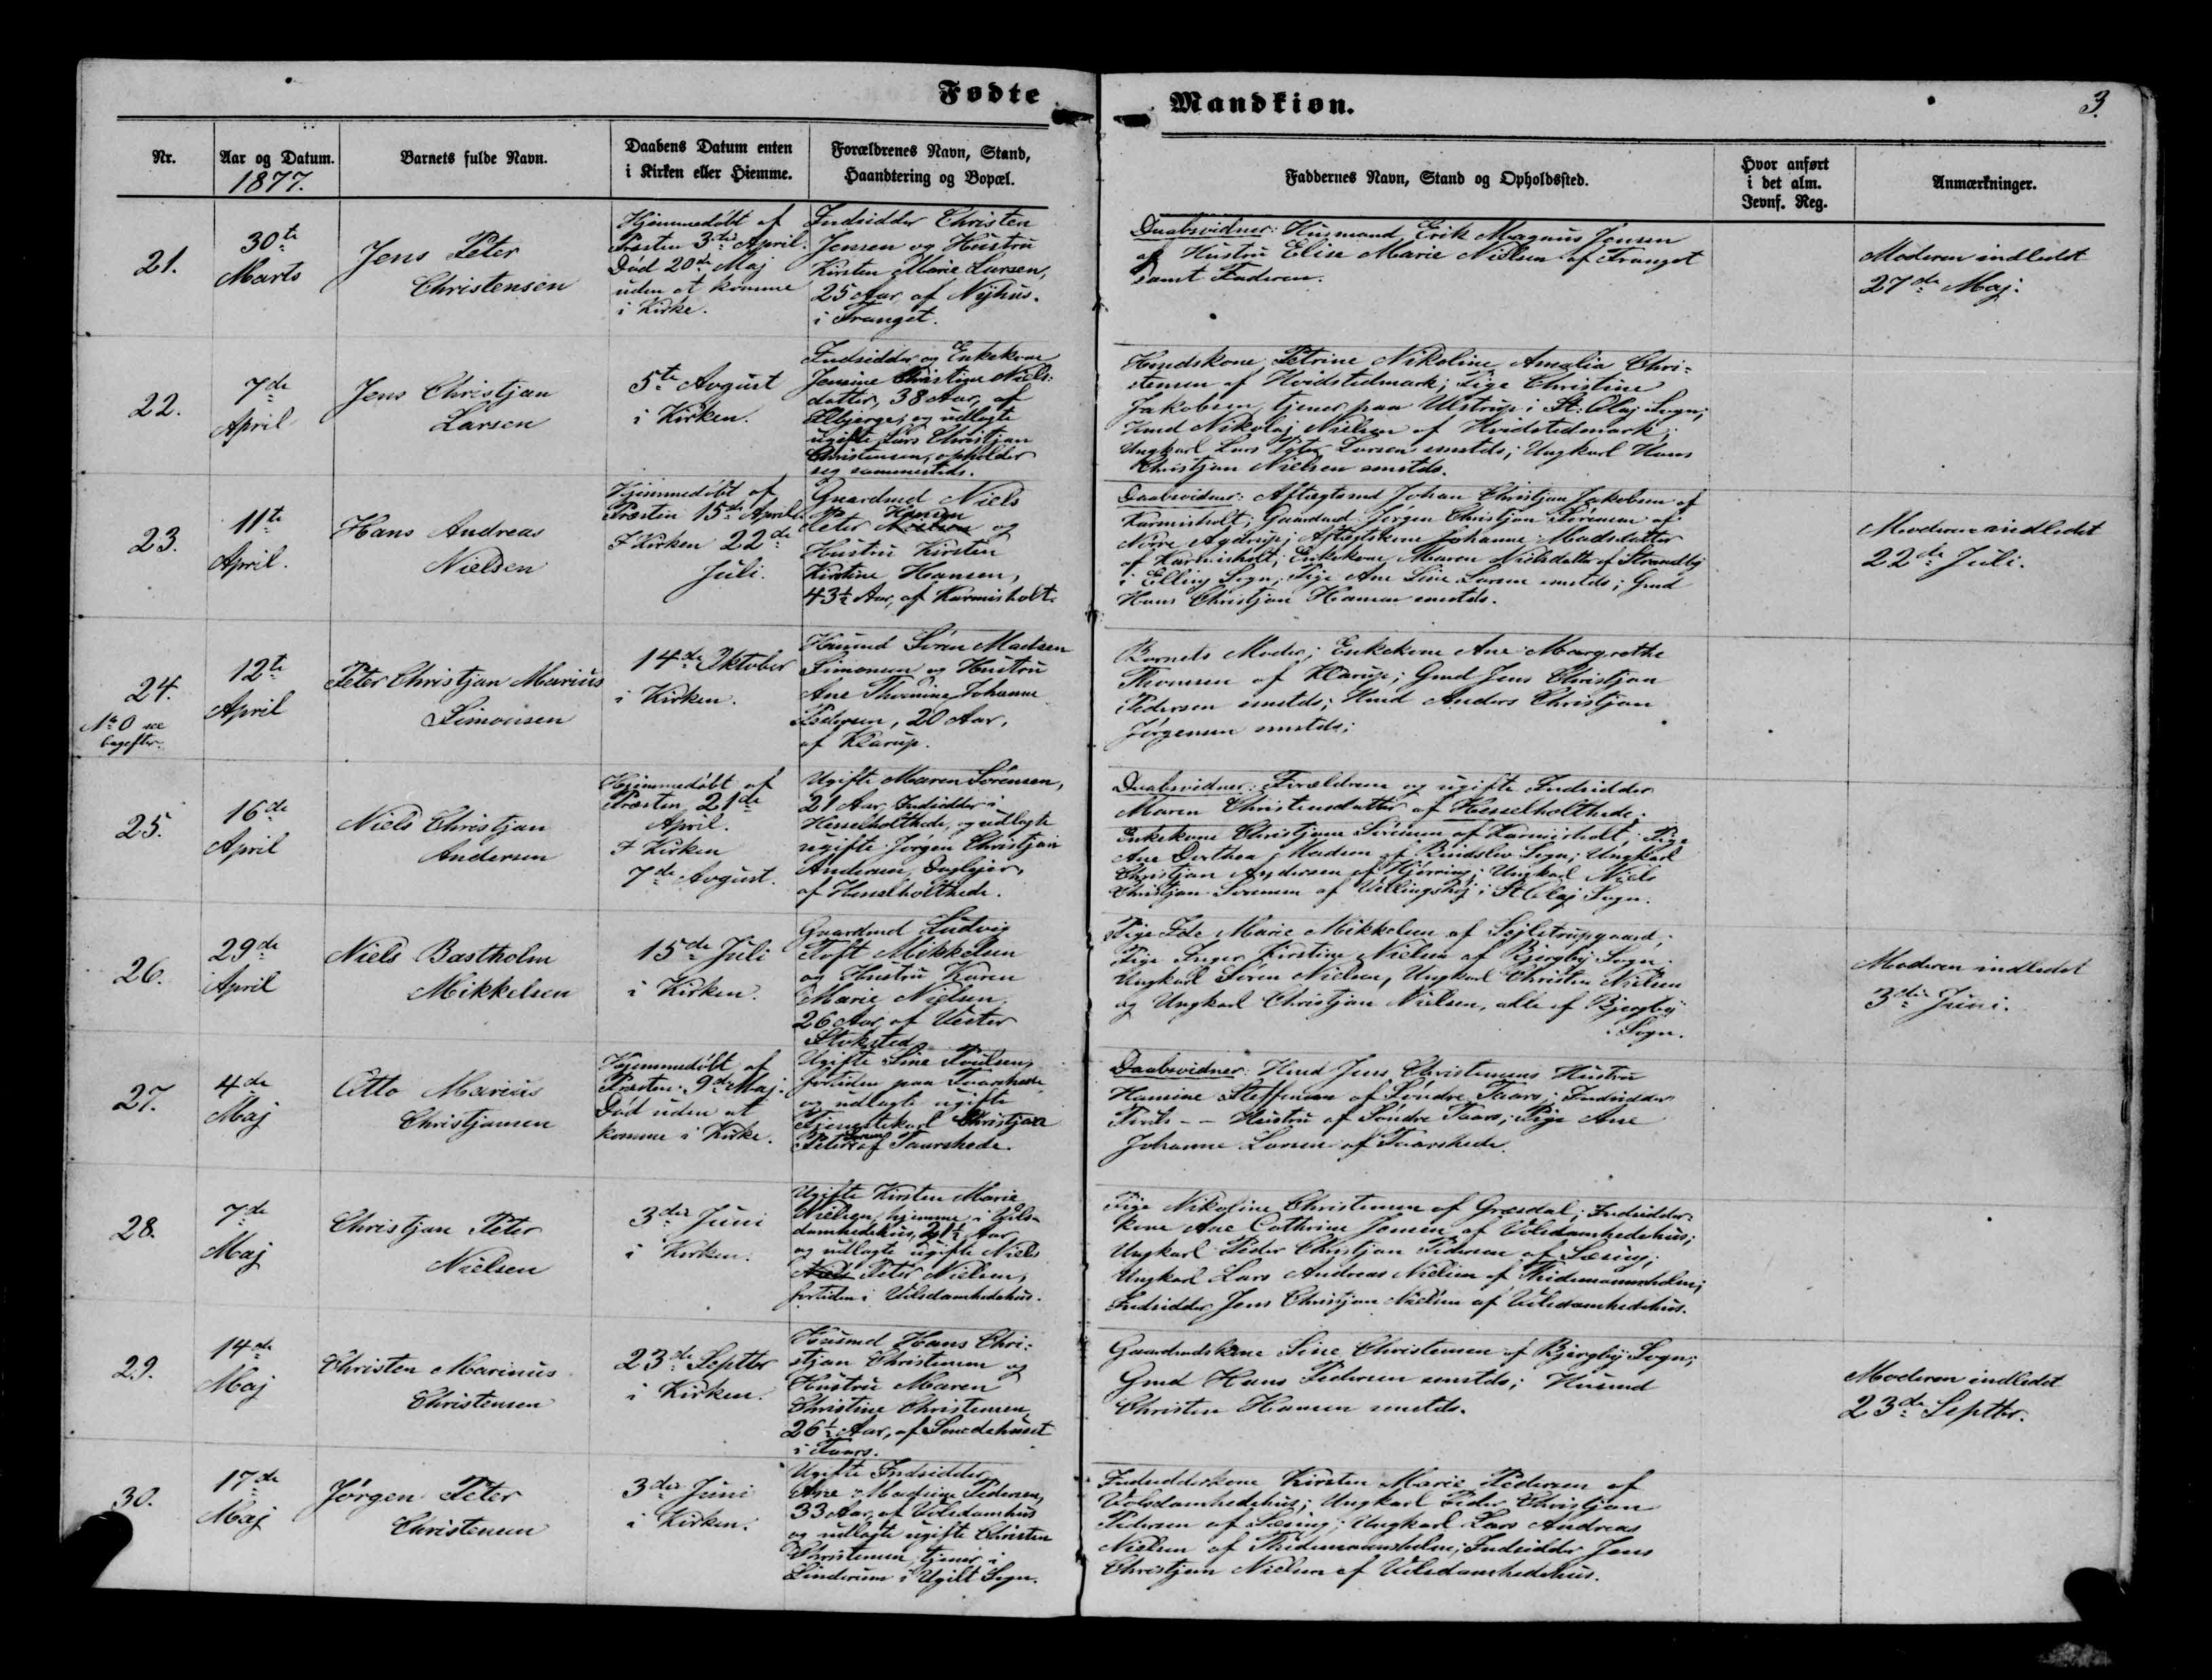 Fødte
Mandkiøn.
3.
Nr.
Aar og Datum.
1877.
Barnets fulde Navn.
Daabens Datum enten
i Kirken eller Hiemme.
Forældrenes Navn, Stand,
Haandtering og Bopæl.
Faddernes Navn, Stand og Opholdssted.
Hvor anført
i det alm.
Jevnf. Reg.
Anmærkninger.
21.
30te
Marts
Jens Peter
Christensen
Hjemmedøbt af
Præsten 3die April.
Død 20de Maj
uden at komme
i Kirke.
Indsidder Christen
Jensen og Hustru
Kirsten Marie Larsen,
25 Aar, af Nyhus
i Tranget.
Daabsvidner: Husmand Erik Magnus Jensen
og Hustru Elise Marie Nielsen af Tranget
samt Faderen.
Moderen indledet
27de Maj.
22.
7de
April
Jens Christjan
Larsen
5te August
i Kirken.
Indsidder og Enkekone
Jensine Christine Niels-
datter, 38 Aar, af
Elbjerge; og udlagte
ugifte Lars Christjan
Christensen, opholder
sig sammesteds.
Husmdskone Petrine Nikoline Amalia Chri-
stensen af Hvidstedmark; Pige Christine
Jakobsen, tjener paa Ulstrup i St: Olaj Sogn;
Husmd Nikolaj Nielsen af Hvidstedmark;
Ungkarl Lars Peter Larsen smstds; Ungkarl Hans
Christjan Nielsen smstds.
23.
11te
April.
Hans Andreas
Nielsen
Hjemmedøbt af
Præsten 15de April.
I Kirken 22de
Juli.
Gaardmd Niels
Peter Hansen og
Hustru Kirsten
Kirstine Hansen,
43½ Aar, af Karmisholt.
Daabsvidner: Aftægtsmd Johan Christjan Jakobsen af
Karmisholt; Gaardmd Jørgen Christjan Sørensen af
Nørre Agdrup; Aftægtskone Johanne Madsdatter
af Karmisholt; Enkekone Maren Nielsdatter af Strandby
i Elling Sogn; Pige Ane Sine Larsen smstds; Gmd
Hans Christjan Hansen smstds.
Moderen indledet
22de Juli.
24.
No 0 see
bagefter.
12te
April
Peter Christjan Marius
Simonsen
14de Oktober
i Kirken.
Husmd Søren Madsen
Simonsen og Hustru
Ane Thomine Johanne
Pedersen, 20 Aar,
af Klarup.
Barnets Moder; Enkekone Ane Margrethe
Thomsen af Klarup; Gmd Jens Christjan
Pedersen smstds; Hmd Anders Christjan
Jørgensen smstds;
25.
16de
April
Niels Christjan
Andersen
Hjemmedøbt af
Præsten 21de
April.
I Kirken
7de August.
Ugifte Maren Sørensen,
21 Aar, Indsidder i
Hesselholthede, og udlagte
ugifte Jørgen Christjan
Andersen, Daglejer,
af Hesselholthede.
Daabsvidner: Forældrene og ugifte Indsidder
Maren Christensdatter af Hesselholthede;
Enkekone Christjane Sørensen af Karmisholt; Pige
Ane Dorthea Madsen af Bindslev Sogn; Ungkarl
Christjan Andersen af Hjørring; Ungkarl Niels
Christjan Sørensen af Vellingshøj i St. Olaj Sogn.
26.
29de
April
Niels Bastholm
Mikkelsen
15de Juli
i Kirken.
Gaardmd Ludvig
Toft Mikkelsen
og Hustru Karen
Marie Nielsen,
26 Aar, af Vester
Stoksted
Pige Ide Marie Mikkelsen af Sejlstrupgaard;
Pige Inger Kirstine Nielsen af Bjergby Sogn.
Ungkarl Søren Nielsen, Ungkarl Christen Nielsen
og Ungkarl Christjan Nielsen, alle af Bjergby
Sogn.
Moderen indledet
3die Juni.
27.
4de
Maj
Otto Marius
Christjansen
Hjemmedøbt af
Præsten 9de Maj.
Død uden at
komme i Kirke.
Ugifte Sine Poulsen,
fortiden paa Taarshede,
og udlagte ugifte
Tjenestekarl Christjan
Petersen af Taarshede.
Daabsvidner: Hmd Jens Christensens Hustru
Hansine Steffensen af Søndre Taars; Indsidder
- - Hustru af Søndre Taars; Pige Ane
Johanne Larsen af Taarshede.
28.
7de
Maj
Christjan Peter
Nielsen
3die Juni
i Kirken.
Ugifte Kirsten Marie
Nielsen, hjemme i Vols-
damhedehus, 21½ Aar
og udlagte ugifte Niels
Peter Nielsen,
fortiden i Volsdamhedehus.
Pige Nikoline Christensen af Græsdal; Indsidder-
kone Ane Cathrine Jensen af Volsdamhedehus;
Ungkarl Peder Christjan Pedersen af Sæsing;
Ungkarl Lars Andreas Nielsen af Thidemannsholm;
Indsidder Jens Christjan Nielsen af Volsdamhedehus.
29.
14de
Maj
Christen Marinus
Christensen
23de Septbr
i Kirken.
Husmd Hans Chri-
stjan Christensen og
Hustru Maren
Christine Christensen,
26½ Aar, af Smedehuset
i Taars.
Gaardmdskone Sine Christensen af Bjergby Sogn;
Gmd Hans Pedersen smstds; Husmd
Christen Hansen smstds.
Moderen indledet
23de Septbr.
30.
17de
Maj
Jørgen Peter
Christensen
3die Juni
i Kirken.
Ugifte Indsidder
Ane Madsine Pedersen,
33 Aar, af Volsdamhus
og udlagte ugifte Christen
Christensen, tjener i
Linderum i Ugilt Sogn.
Indsidderkone Kirsten Marie Pedersen af
Volsdamhedehus; Ungkarl Peder Christjan
Pedersen af Sæsing; Ungkarl Lars Andreas
Nielsen af Thidemannsholm; Indsidder Jens
Christjan Nielsen af Volsdamhedehus.